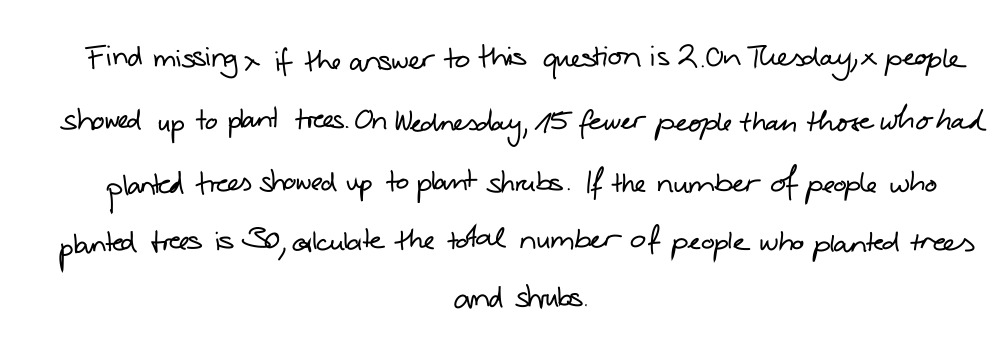 Find missing x if the answer to this question is 2. On Tuesday, x people
showed up to plant trees. On Wednesday, 15 fewer people than those who had
planted trees showed up to plant shrubs. If the number of people who
planted trees is 30, calculate the total number of people who planted trees
and shrubs.